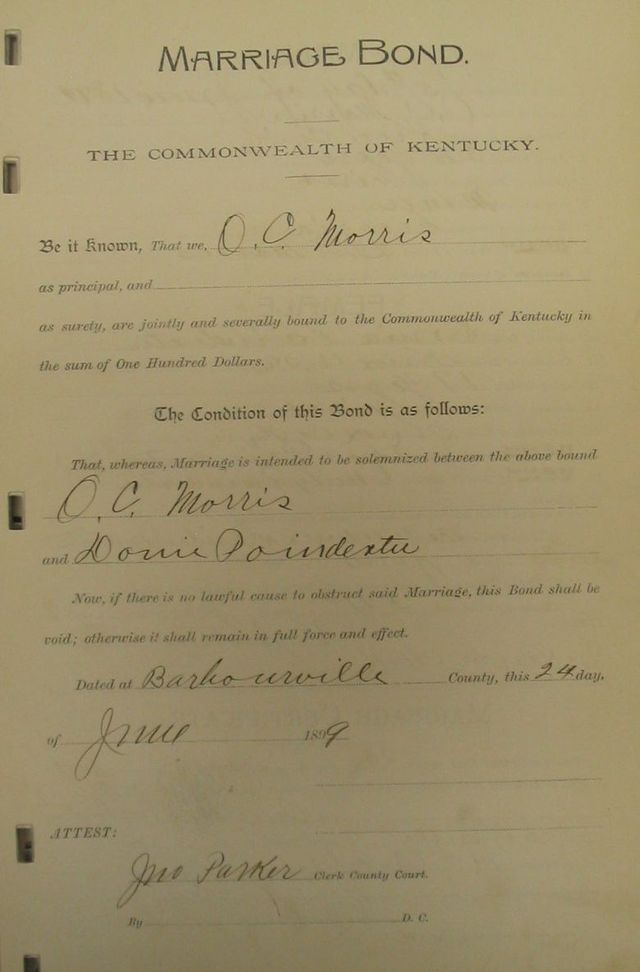 MARRIAGE BOND.
THE COMMONWEALTH OF KENTUCKY.
Be it Known, That we, O. C. Morris
as principal, and
as surety, are jointly and severally bound to the Commonwealth of Kentucky in
the sum of One Hundred Dollars.
The Condition of this Bond is as follows:
That, whereas, Marriage is intended to be solemnized between the above bound
O. C. Morris
and Donie Poindexter
Now, if there is no lawful cause to obstruct said Marriage, this Bond shall be
void; otherwise it shall remain in full force and effect.
Dated at Barbourville County, this 24 day,
of June 1899
ATTEST:
Jno Parker Clerk County Court.
By D. C.